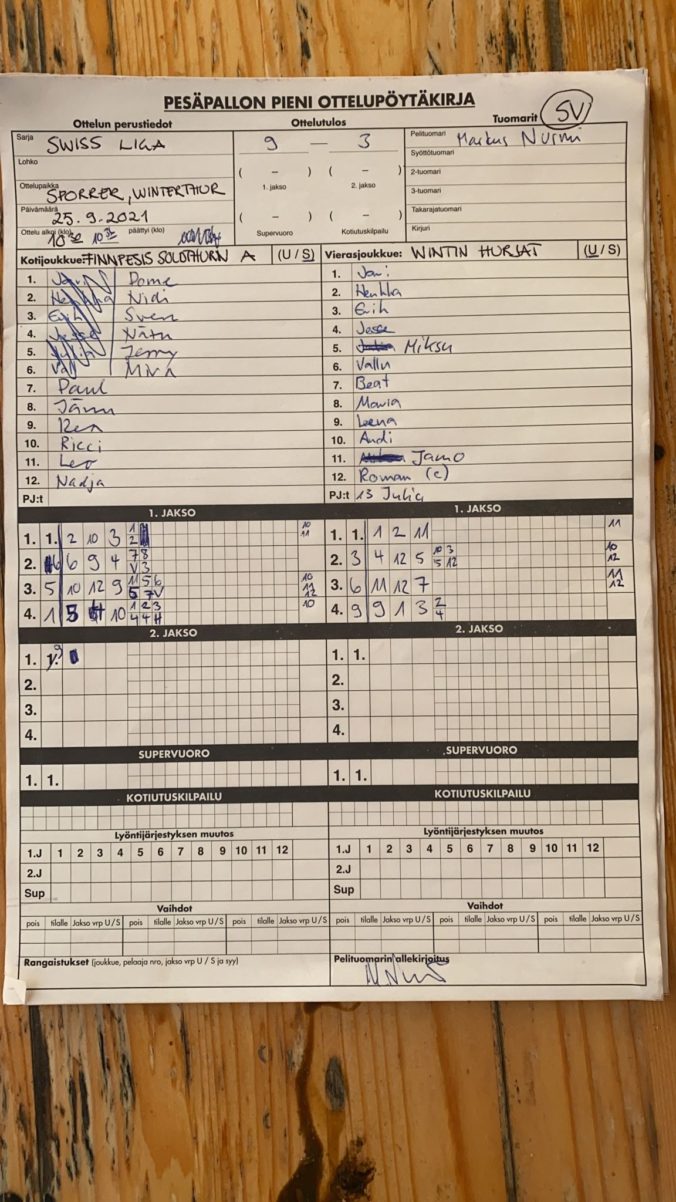 PESÄPALLON PIENI OTTELUPÖYTÄKIRJA
Ottelun perustiedot Ottelutulos Tuomarit SV
Sarja SWISS LIGA 9 – 3 Pelituomari Markus Nurmi
Lohko Syöttötuomari
( – ) ( – ) 2-tuomari
Ottelupaikka SPORRER, WINTERTHUR 1. jakso 2. jakso 3-tuomari
Päivämäärä 25.9.2021 Takarajatuomari
( – ) ( – )
Ottelu alkoi (klo) päättyi (klo) Supervuoro Kotiutuskilpailu Kirjuri
Kotijoukkue: FINNPESIS SOLOTHURN A (U / S) Vierasjoukkue: WINTIN HURJAT (U / S)
1. Dome 1. Jani
2. Henkka Nidi 2. Henkka
3. Erik Sven 3. Erik
4. Jesse Nätu 4. Jesse
5. Jenny 5. Miksu
6. Miva 6. Vallu
7. Paul 7. Beat
8. Jänu 8. Maria
9. 9. Leena
10. Ricci 10. Andi
11. Leo 11. Jamo
12. Nadja 12. Roman (c)
PJ:t PJ:t 13 Julia
1. JAKSO 1. JAKSO
1. 1. 2 10 3 10 11 1. 1. 1 2 11 11
2. 6 6 9 4 7 8 V 3 2. 3 4 12 5 10 3 5 12 10 12
3. 5 10 12 9 11 5 6 5 7 V 10 11 12 3. 6 11 12 7 11 12
4. 1 5 10 1 2 3 4 4 H 10 4. 9 9 1 3 2 4
2. JAKSO 2. JAKSO
1. 1. 9 1. 1.
2. 2.
3. 3.
4. 4.
SUPERVUORO SUPERVUORO
1. 1. 1. 1.
KOTIUTUSKILPAILU KOTIUTUSKILPAILU
Lyöntijärjestyksen muutos Lyöntijärjestyksen muutos
1.J 1 2 3 4 5 6 7 8 9 10 11 12 1.J 1 2 3 4 5 6 7 8 9 10 11 12
2.J 2.J
Sup Sup
Vaihdot Vaihdot
pois tilalle Jakso vrp U / S pois tilalle Jakso vrp U / S pois tilalle Jakso vrp U / S pois tilalle Jakso vrp U / S
Rangaistukset (joukkue, pelaaja nro, jakso vrp U / S ja syy) Pelituomarin allekirjoitus